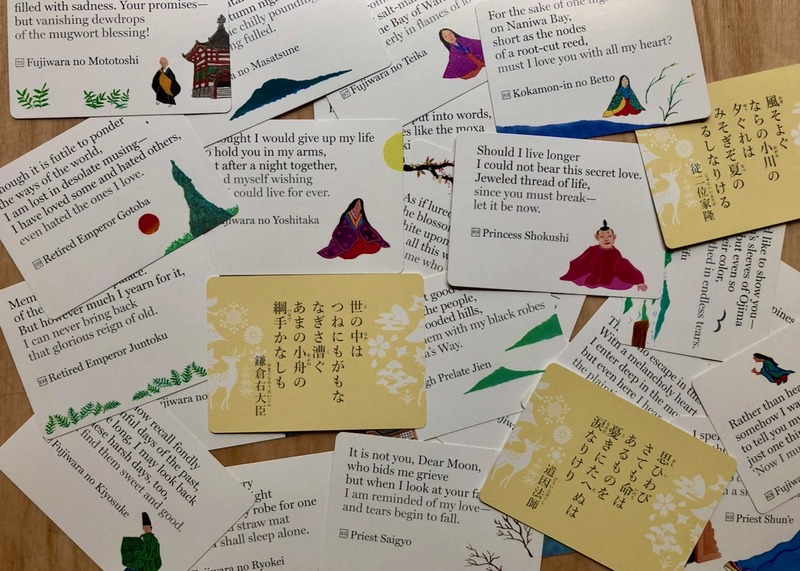 filled with sadness. Your promises—
but vanishing dewdrops
of the mugwort blessing!
75 Fujiwara no Mototoshi
chilly pounding
Masatsune
97 Fujiwara no Teika
For the sake of one night
on Naniwa Bay,
short as the nodes
of a root-cut reed,
must I love you with all my heart?
88 Kokamon-in no Betto
風そよぐ
ならの小川の
夕ぐれは
みそぎぞ夏の
しるしなりける
従二位家隆
though it is futile to ponder
the ways of the world,
I am lost in desolate musing—
I have loved some and hated others,
even hated the ones I love.
99 Retired Emperor Gotoba
thought I would give up my life
to hold you in my arms,
but after a night together,
find myself wishing
could live for ever.
Fujiwara no Yoshitaka
put into words,
like the moxa
As if lured
the blossoms
white upon
all this w
me who
Should I live longer
I could not bear this secret love.
Jeweled thread of life,
since you must break—
let it be now.
89 Princess Shokushi
like to show you—
sleeves of Ojima
but even so
their color,
in endless tears.
of the palace.
But however much I yearn for it,
I can never bring back
that glorious reign of old.
100 Retired Emperor Juntoku
世の中は
つねにもがもな
なぎさ漕ぐ
あまの小舟の
綱手かなしも
鎌倉右大臣
good
the people,
wooded hills,
them with my black robes
Way.
Prelate Jien
no escape in the
With a melancholy heart
I enter deep in the mo
but even here I hear
the plain
pines
Rather than hear
somehow I wa
to tell you my
just one thing
'Now I mu
Fujiwara
now recall fondly
painful days of the past,
long, I may look back
these harsh days, too,
find them sweet and good.
Fujiwara no Kiyosuke
robe for one
straw mat
shall sleep alone.
Fujiwara no Ryokei
It is not you, Dear Moon,
who bids me grieve
but when I look at your fa
I am reminded of my love—
and tears begin to fall.
86 Priest Saigyo
思ひわび
さても命は
あるものを
憂きにたへぬは
涙なりけり
道因法師
I spe
85 Priest Shun'e